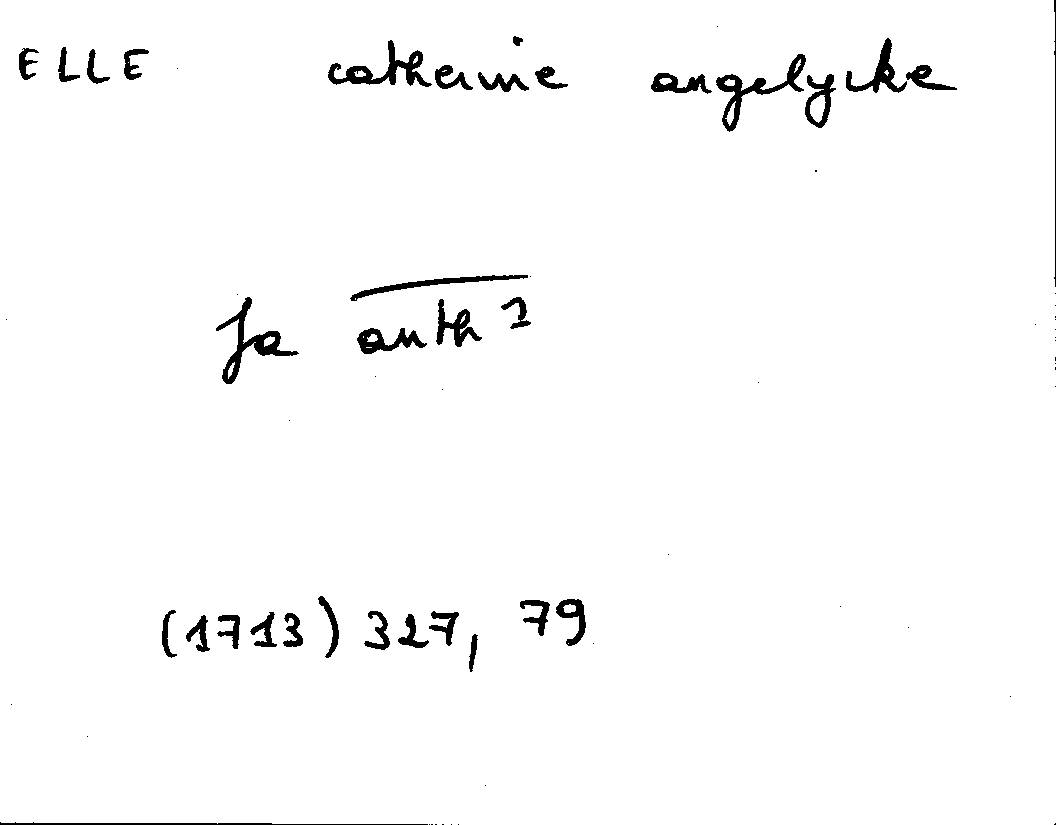 ELLE catherine angelycke
Ja anth 1
(1713) 327, 79